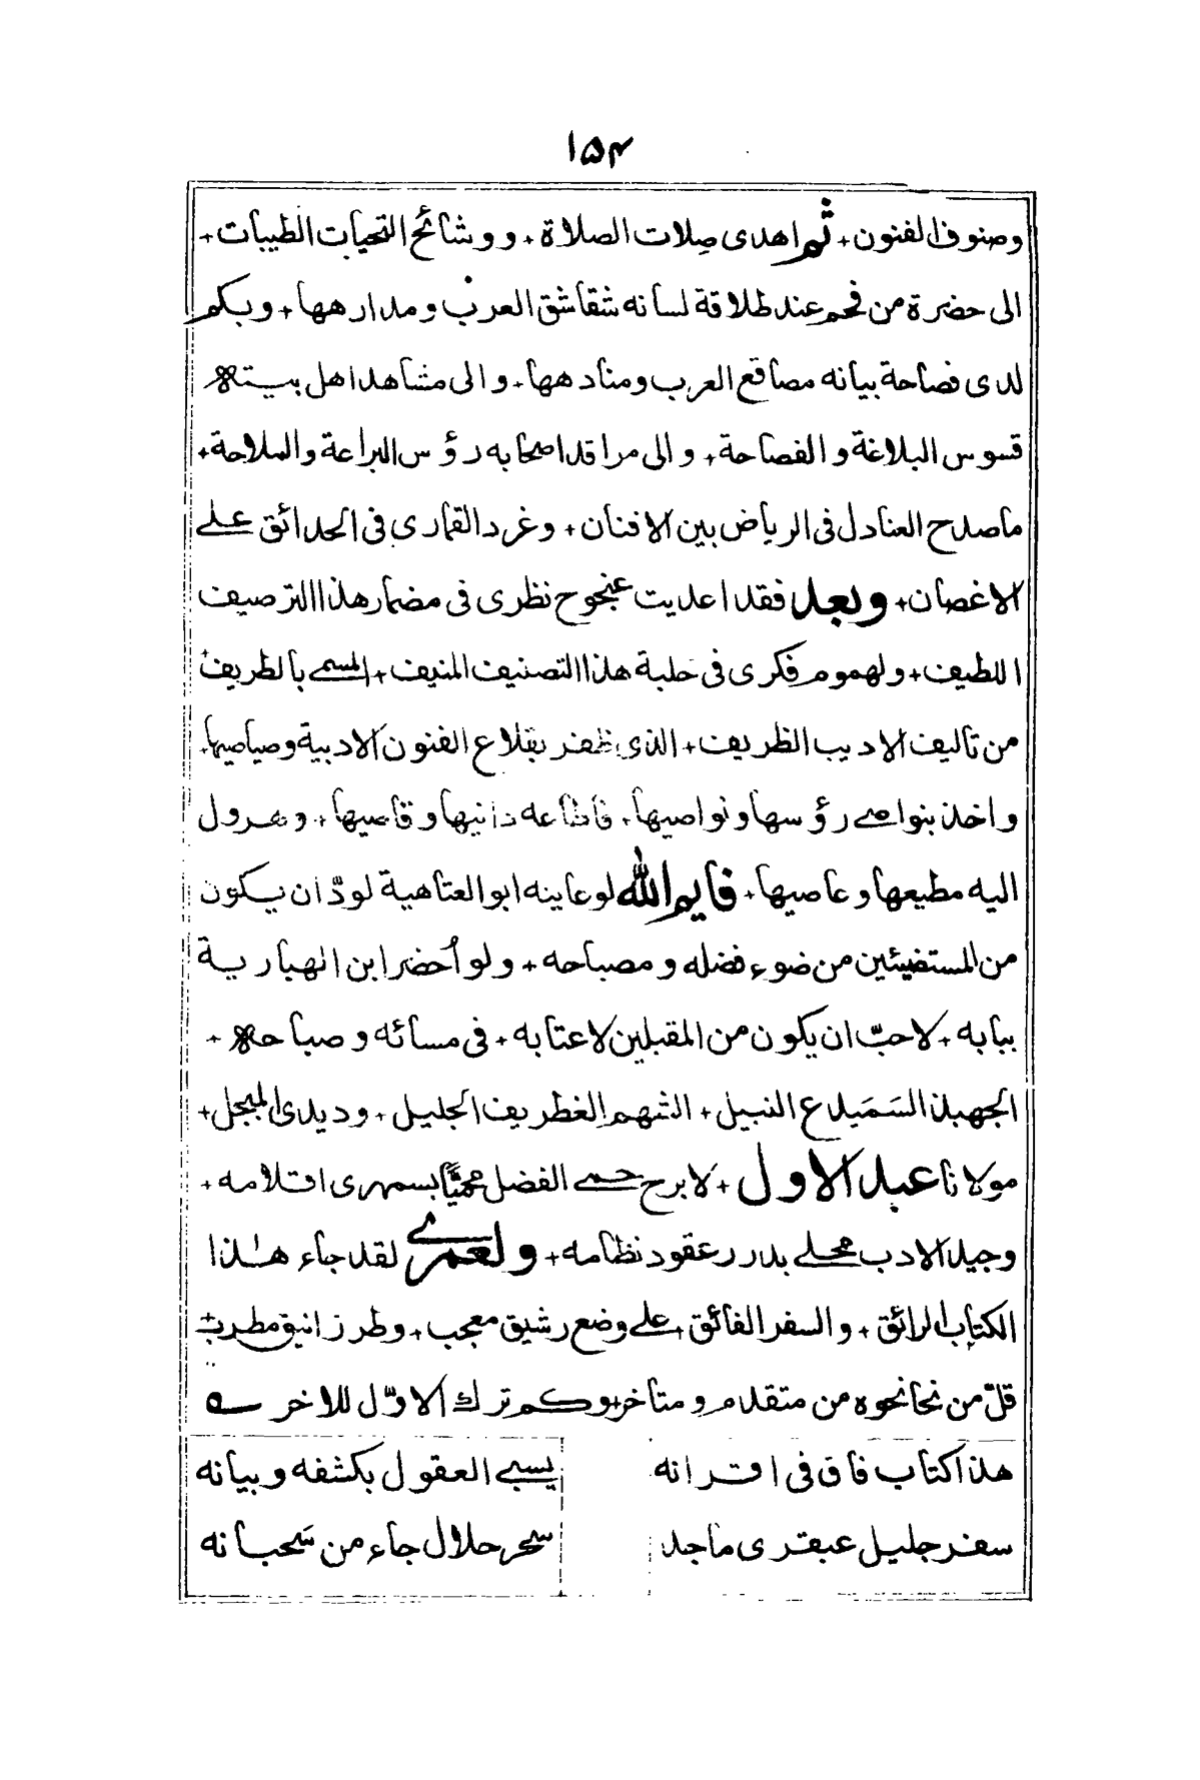 ۱۵۴
وصنوف الفنون + ثم اهدى صِلات الصلاة + ووشائح التحيات الطيبات +
الى حضرة من فحم عند طلاقة لسانه شقاشق العرب ومدارهها + وبكم
لدى فصاحة بيانه مصاقع العرب ومنادهها + والى مشاهد اهل بيته
قسوس البلاغة والفصاحة + والى مراقد اصحابه رؤس البراعة والملاحة +
ما صدح العنادل فى الرياض بين الافنان + وغرد القمارى فى الحدائق على
الاغصان + وبعد فقد اعديت عنجوح نظرى فى مضمار هذا الترصيف
اللطيف + ولهموم فكرى فى حلبة هذا التصنيف المنيف + المسمى بالطريف
من تاليف الاديب الظريف + الذى ظفر بقلاع الفنون الادبية وصياصيها +
واخذ بنواصى رؤسها ونواصيها + فاطاعه دانيها وقاصيها + وهرول
اليه مطيعها وعاصيها + فايم الله لو عاينه ابو العتاهية لودّ ان يكون
من المستضيئين من ضوء فضله ومصباحه + ولو اُحضر ابن الهبارية
ببابه + لاحبّ ان يكون من المقبلين لاعتابه + فى مسائه وصباحه +
الجهبذ السَمَيدع النبيل + الشهم الغطريف الجليل + وديدى المبجل +
مولانا عبد الاول + لا برح حمى الفضل محميًّا بسمهرى اقلامه +
وجيد الادب محلى بدرر عقود نظامه + ولعمرى لقد جاء هٰذا
الكتاب الرائق + والسفر الفائق + على وضع رشيق معجب + وطرز انيق مطرب +
قلّ من نحا نحوه من متقدم ومتاخر + وكم ترك الاوّل للاخر ے
هذا كتاب فاق فى اقرانه يسبى العقول بكشفه وبيانه
سفر جليل عبقرى ماجد سحر حلال جاء من سَحبانه